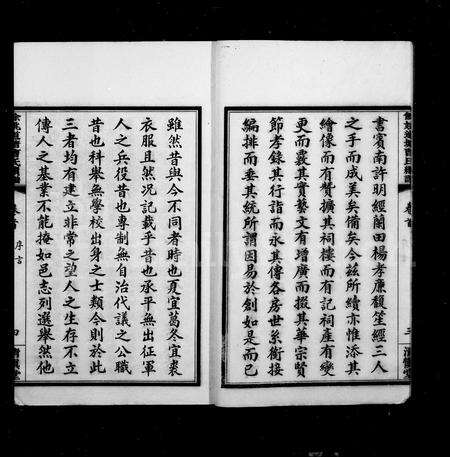 書賓南許明經蘭田楊孝廉馥笙經三人
之手而成美矣備矣今茲所續亦惟添其
繪像而有贊擴其祠樓而有記祠產有變
更而覈其實藝文有增廣而掇其華宗賢
節孝錄其行詣而永其傳各房世系銜接
編排而垂其統所謂因易於創如是而已
卷首
三
雖然昔與今不同者時也夏宜葛冬宜裘
衣服且然况記載乎昔也承平無出征軍
人之兵役昔也專制無自治代議之公職
昔也科舉無學校出身之士類今則於此
三者均有建立非常之望人之生存不立
傳人之基業不能掩如邑志列選舉然他
卷首
序言
四